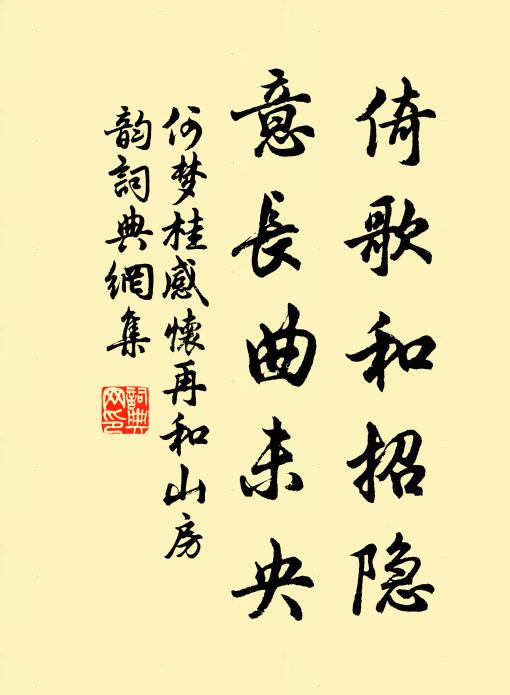 倚歌和招隐
意長曲未央
何梦桂感懷再和山房
韵詞典網集
詞典
网印